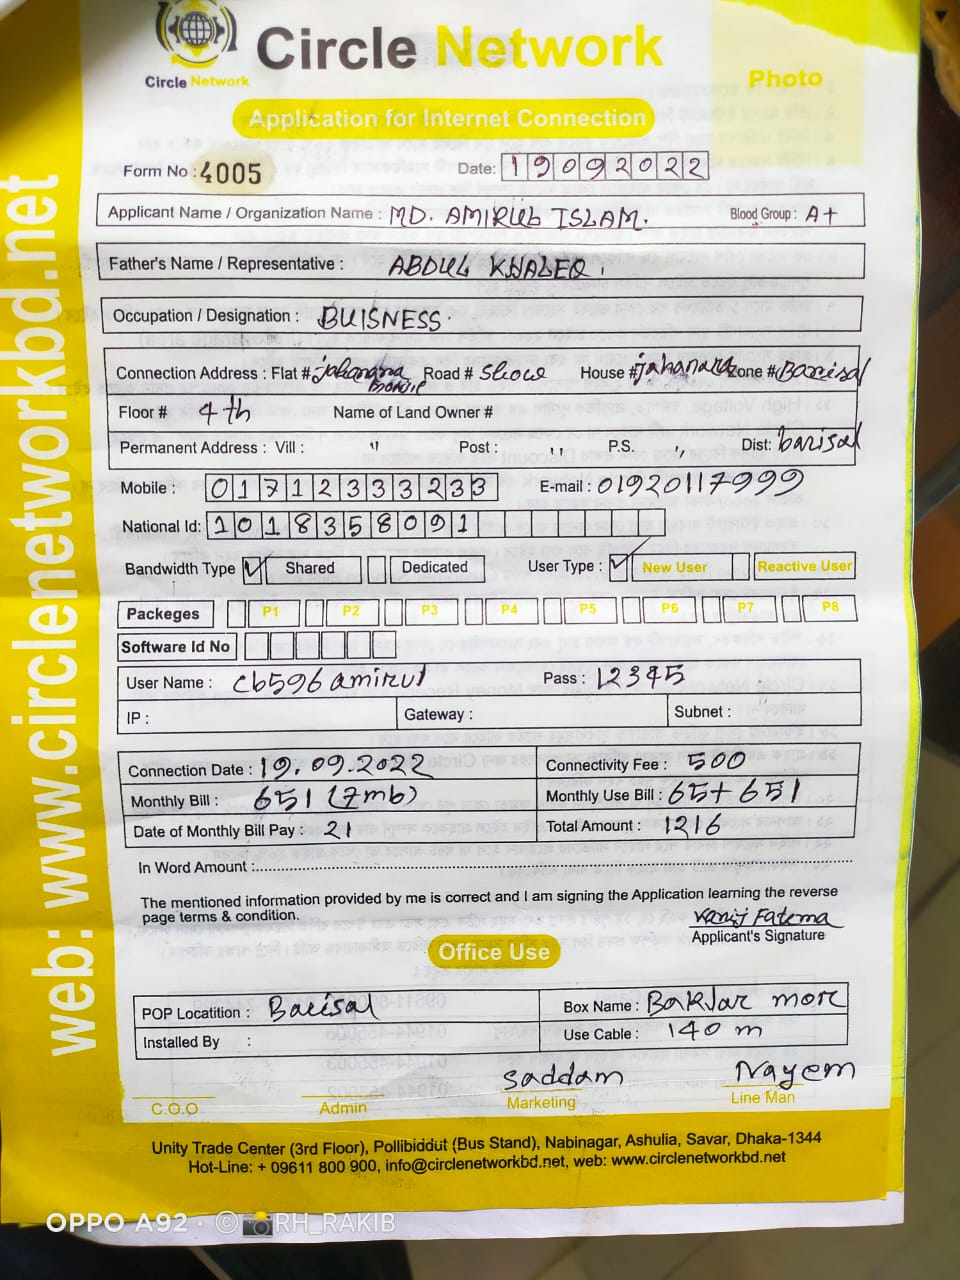 Circle Network
Circle Network
Photo
Application for Internet Connection
Form No : 4005
Date: 19092022
Applicant Name / Organization Name : MD. AMIRUL ISLAM. Blood Group : A+
Father's Name / Representative : ABDUL KHALEQ.
Occupation / Designation : BUISNESS.
Connection Address : Flat # jahanara monjil Road # Sloow House # jahanara Zone # Barisal
Floor # 4th Name of Land Owner #
Permanent Address : Vill : " Post : " P.S. " Dist: barisal
Mobile : 01712333233 E-mail : 01920117999
National Id: 1018358091
Bandwidth Type ✓ Shared Dedicated User Type : ✓ New User Reactive User
Packeges P1 P2 P3 P4 P5 P6 P7 P8
Software Id No
User Name : cb596amirul Pass : 12345
IP : Gateway : Subnet :
Connection Date : 19.09.2022 Connectivity Fee : 500
Monthly Bill : 651 (7mb) Monthly Use Bill : 65+651
Date of Monthly Bill Pay : 21 Total Amount : 1216
In Word Amount :
The mentioned information provided by me is correct and I am signing the Application learning the reverse
page terms & condition.
Kanij Fatema
Applicant's Signature
Office Use
POP Locatition : Barisal Box Name : Bakdar more
Installed By : Use Cable : 140 m
saddam Nayem
C.O.O Admin Marketing Line Man
Unity Trade Center (3rd Floor), Pollibiddut (Bus Stand), Nabinagar, Ashulia, Savar, Dhaka-1344
Hot-Line: + 09611 800 900, info@circlenetworkbd.net, web: www.circlenetworkbd.net
web: www.circlenetworkbd.net
OPPO A92 · © RH_RAKIB